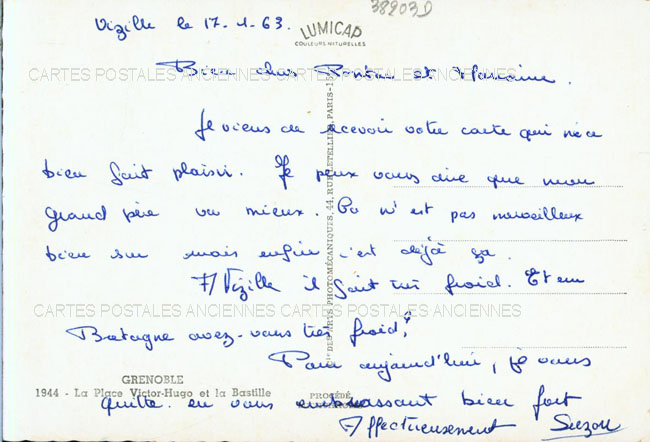 38903D
Vizille le 17-1-63.
LUMICAP
COULEURS NATURELLES
CARTES POSTALES ANCIENNES CARTES POSTALES ANCIENNES
Bien chers et Marraine.
Je viens de recevoir votre carte qui m'a
bien fait plaisir. Je peux vous dire que mon
grand père va mieux. Ce n'est pas merveilleux
bien sur mais enfin c'est déjà ça.
A Vizille il fait très froid. Et en
CARTES POSTALES ANCIENNES CARTES POSTALES ANCIENNES
Bretagne avez-vous très froid?
Pour aujourd'hui, je vous
GRENOBLE
1944 - La Place Victor-Hugo et la Bastille
quitte en vous embrassant bien fort
Affectueusement Suzon
DES ARTS PHOTOMÉCANIQUES, 44, RUE LETELLIER, PARIS-15
PROCÉDÉ